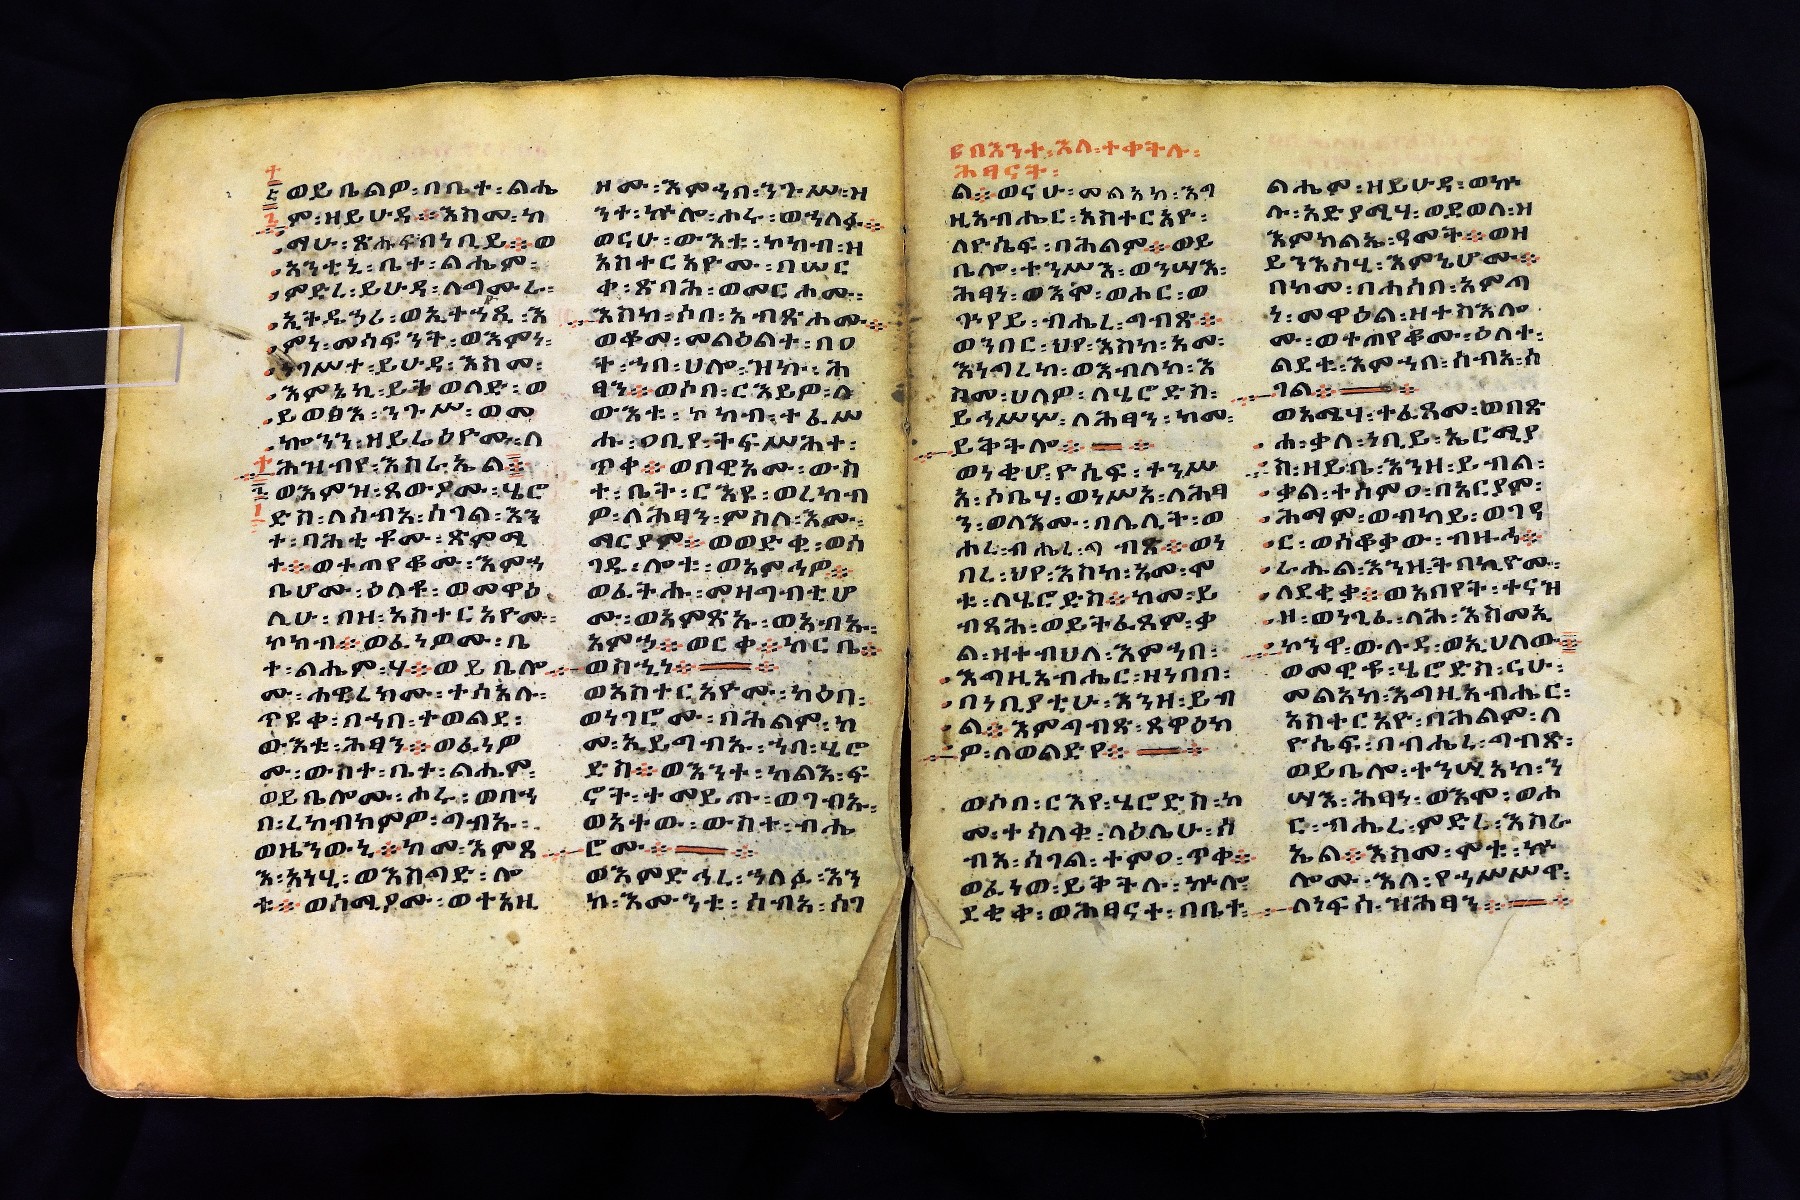 ወይቤልዎ፡በቤተ፡ልሔ
ም፡ዘይሁዳ፨እስመ፡ከ
ማሁ፡ጽሑፍ፡በነቢይ፨ወ
አንቲኒ፡ቤተ፡ልሔም፡
ምድረ፡ይሁዳ፡ለግሙራ፡
ኢትዴኃሪ፡ወኢተኀጺ፡እ
ምነ፡መሳፍንት፡ወእምነ፡
ነገሥተ፡ይሁዳ፡እስመ፡
እምኔኪ፡ይትወለድ፡ወ
ይወፅእ፡ንጉሥ፡ወመ
ኰንን፡ዘይሬዕዮሙ፡ለ
ሕዝብየ፡እስራኤል፨
ወእምዝ፡ጸውዖሙ፡ሄሮ
ድስ፡ለሰብአ፡ሰገል፡እን
ተ፡ባሕቲቶሙ፡ጽምሚ
ተ፨ወተጠየቆሙ፡እምኀ
ቤሆሙ፡ዕለቶ፡ወመዋዕ
ሊሁ፡በዘ፡አስተርአዮሙ፡
ኮከብ፨ወፈነዎሙ፡ቤ
ተ፡ልሔም፡ሃ፨ወይቤሎ
ሙ፡ሐዊረክሙ፡ተሰአሉ፡
ጥዩቀ፡በኀበ፡ተወልደ፡
ውእቱ፡ሕፃን፨ወፈነዎ
ሙ፡ውስተ፡ቤተ፡ልሔም፡
ወይቤሎሙ፡ሐሩ፡ወበኀ
በ፡ረከብክምዎ፡ግብኡ፡
ወዜንውኒ፨ከመ፡እምጻ
እ፡አነሂ፡ወእሰግድ፡ሎ
ቱ፨ወሰሚዖሙ፡ወተአዚ
ዞሙ፡እምኀበ፡ንጉሥ፡ዝ
ንተ፡ኵሎ፡ሐሩ፡ወኀለፉ፨
ወናሁ፡ውእቱ፡ኮከብ፡ዘ
አስተርአዮሙ፡በሠር
ቀ፡ጽባሕ፡ወመርሐሙ፡
እስከ፡ሶበ፡አብጽሐሙ፨
ወቆመ፡መልዕልተ፡በዐ
ት፡ኀበ፡ሀሎ፡ዝኩ፡ሕ
ፃን፨ወሶበ፡ርእይዎ፡ለ
ውእቱ፡ኮከብ፡ተፈሥ
ሑ፡ዐቢየ፡ትፍሥሕተ፡
ጥቀ፨ወበዊአሙ፡ውስ
ተ፡ቤት፡ርእዩ፡ወረከብ
ዎ፡ለሕፃን፡ምስለ፡እሙ፡
ማርያም፨ወወድቁ፡ወሰ
ገዱ፡ሎቱ፡ወአምኅዎ፨
ወፈትሑ፡መዛግብቲሆ
ሙ፡ወአምጽኡ፡ወአብኡ፡
አምኃ፨ወርቀ፨ከርቤ፨
ወስኂነ፨
ወአስተርአዮሙ፡ካዕበ፡
ወነገሮሙ፡በሕልም፡ከ
መ፡ኢይግብኡ፡ኀበ፡ሄሮ
ድስ፨ወእንተ፡ካልእ፡ፍ
ኖት፡ተመይጡ፡ወገብኡ፡
ወአተው፡ውስተ፡ብሔ
ሮሙ፨
ወእምድኅረ፡ኀለፉ፡እን
ከ፡እሙንቱ፡ሰብአ፡ሰገ
፫በእንተ፡እለ፡ተቀትሉ፡
ሕፃናት፡
ል፨ወናሁ፡መልአከ፡እግ
ዚአብሔር፡አስተርአዮ፡
ለዮሴፍ፡በሕልም፨ወይ
ቤሎ፡ተንሥእ፡ወንሣእ፡
ሕፃነ፡ወእሞ፡ወሖር፡ወ
ጕየይ፡ብሔረ፡ግብጽ፨
ወንበር፡ህየ፡እስከ፡አመ፡
እነግረከ፡ወእብለከ፡እ
ስመ፡ሀለዎ፡ለሄሮድስ፡
ይኅሥሦ፡ለሕፃን፡ከመ፡
ይቅትሎ፨
ወነቂሆ፡ዮሴፍ፡ተንሥ
አ፡ሶቤሃ፡ወነሥአ፡ለሕፃ
ን፡ወለእሙ፡በሌሊት፡ወ
ሖረ፡ብሔረ፡ግብጽ፨ወነ
በረ፡ህየ፡እስከ፡አመ፡ሞ
ቱ፡ለሄሮድስ፨ከመ፡ይ
ብጻሕ፡ወይትፈጸም፡ቃ
ል፡ዘተብህለ፡እምኀበ፡
እግዚአብሔር፡ዘነበበ፡
በነቢያቲሁ፡እንዘ፡ይብ
ል፨እምግብጽ፡ጸዋዕክ
ዎ፡ለወልድየ፨
ወሶበ፡ርእየ፡ሄሮድስ፡ከ
መ፡ተሳለቁ፡ላዕሌሁ፡ሰ
ብአ፡ሰገል፡ተምዐ፡ጥቀ፨
ወፈነወ፡ይቅትሉ፡ኵሎ፡
ደቂቀ፡ወሕፃናተ፡በቤተ፡
ልሔም፡ዘይሁዳ፡ወኵ
ሉ፡አድያሚሃ፡ወደወለ፡ዘ
እምክልኤ፡ዓመት፨ወዘ
ይንእስሂ፡እምኔሆሙ፨
በከመ፡በሐሰበ፡አምጣ
ነ፡መዋዕል፡ዘተስእሎ
ሙ፡ወተጠየቆሙ፡ዕለተ፡
ልደቱ፡እምኀበ፡ሰብአ፡ሰ
ገል፨
ወአሜሃ፡ተፈጸመ፡ወበጽ
ሐ፡ቃለ፡ነቢይ፡ኤርሚያ
ስ፡ዘይቤ፡እንዘ፡ይብል፡
ቃል፡ተሰምዐ፡በአርያም፡
ሕማም፡ወብካይ፡ወገዓ
ር፡ወሰቆቃው፡ብዙኅ፨
ራሔል፡እንዘ፡ትበኪዮሙ፡
ለደቂቃ፨ወአበየት፡ተናዝ
ዞ፡ወነጊፈ፡ላሕ፡እስመኢ
ኮንዋ፡ውሉዳ፡ወኢሀለው፨
ወመዊቶ፡ሄሮድስ፡ናሁ፡
መልአከ፡እግዚአብሔር፡
አስተርአዮ፡በሕልም፡ለ
ዮሴፍ፡በብሔረ፡ግብጽ፡
ወይቤሎ፡ተንሢአከ፡ን
ሣእ፡ሕፃነ፡ወእሞ፡ወሖ
ር፡ብሔረ፡ምድረ፡እስራ
ኤል፨እስመ፡ሞቱ፡ኵ
ሎሙ፡እለ፡የኀሥሥዋ፡
ለነፍሰ፡ዝሕፃን፨